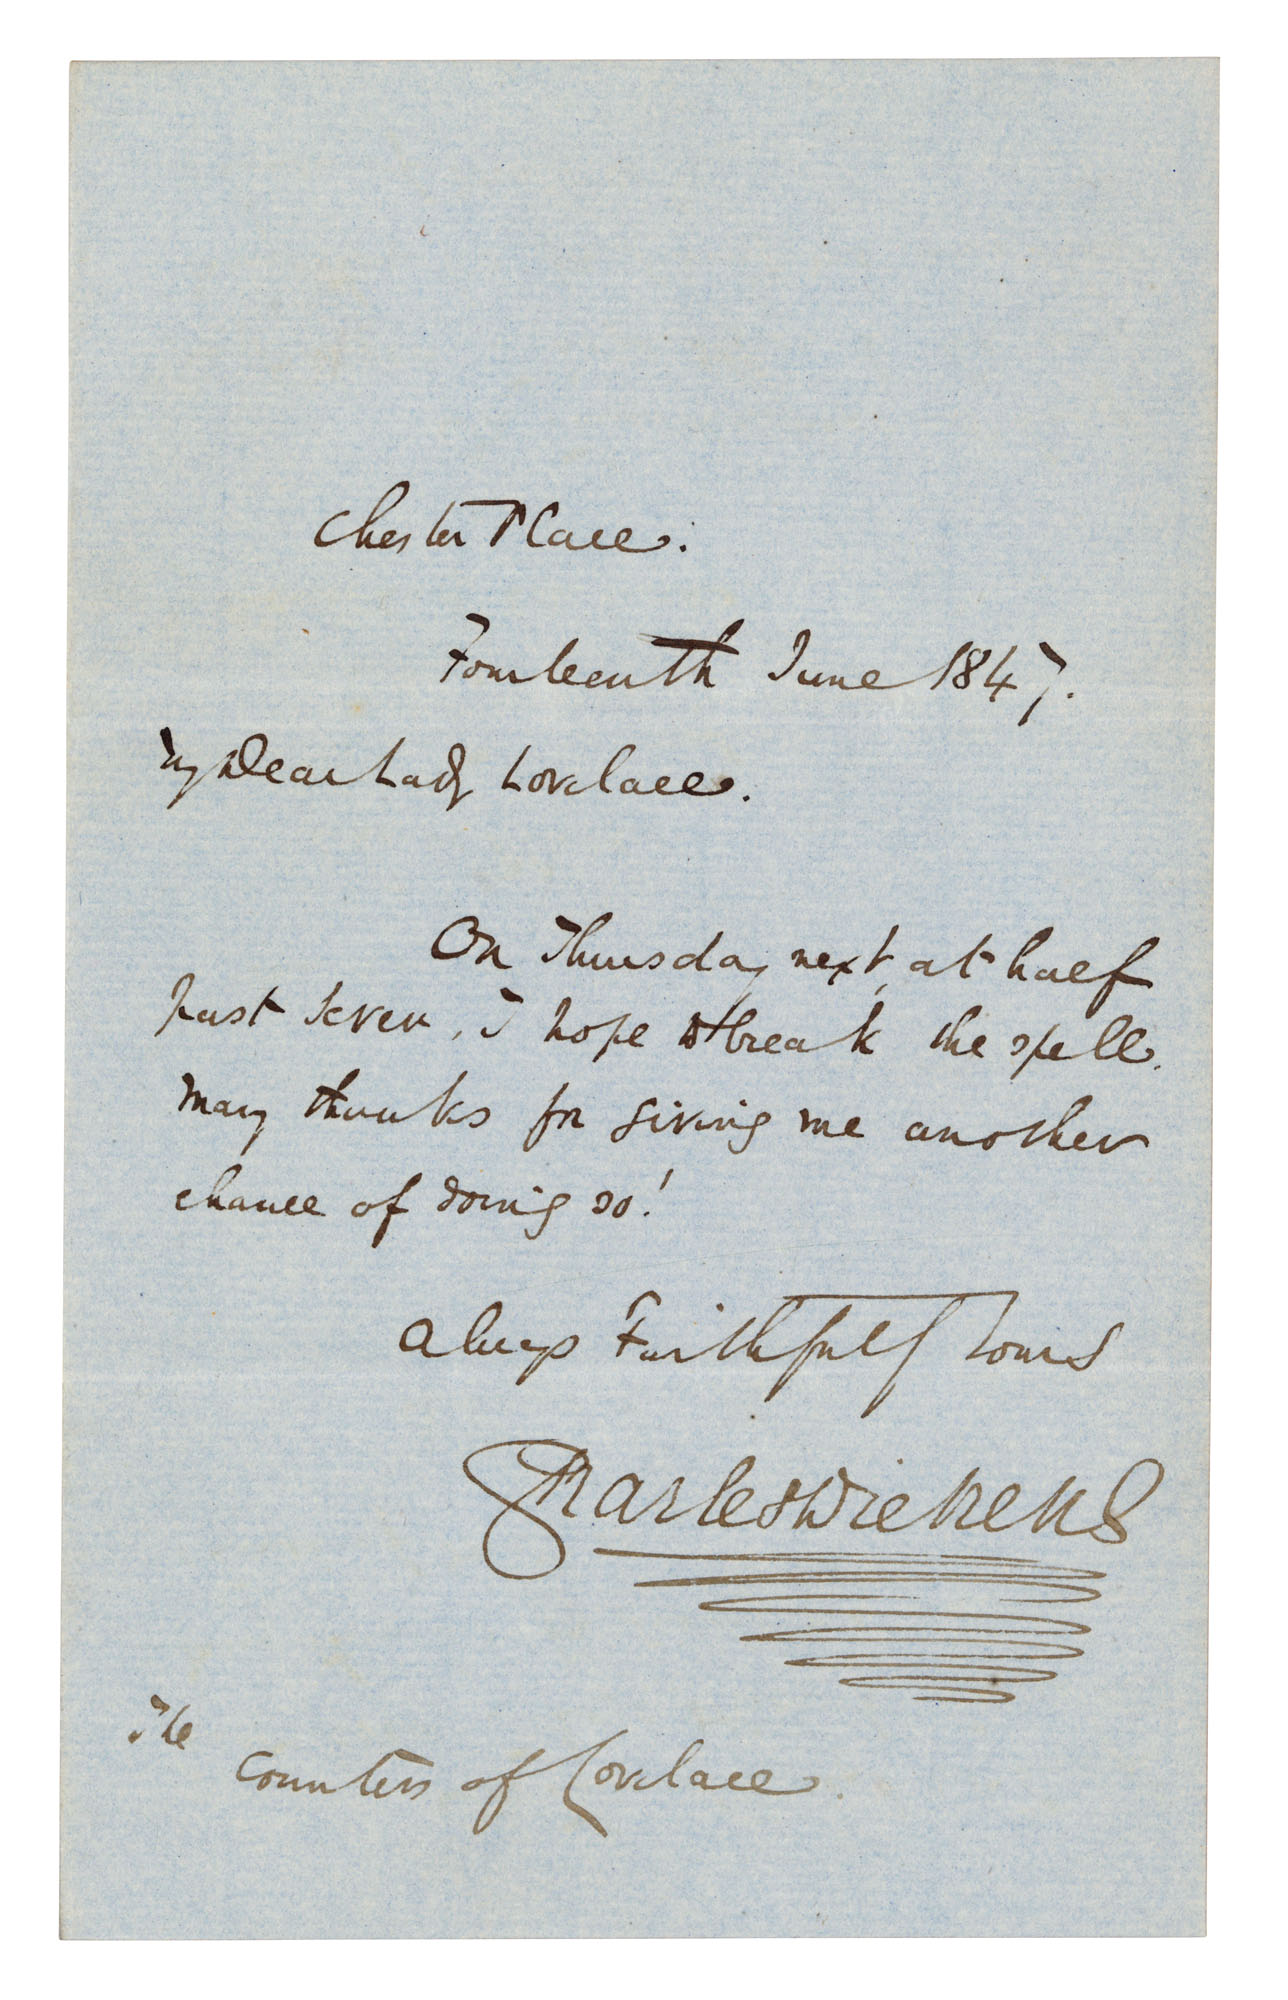 Chester Place.
Fourteenth June 1847.
My Dear Lady Lovelace.
On Thursday next, at half
past seven, I hope to break the spell.
Many thanks for giving me another
chance of doing so!
Always Faithfully Yours
Charles Dickens
The
Countess of Lovelace.